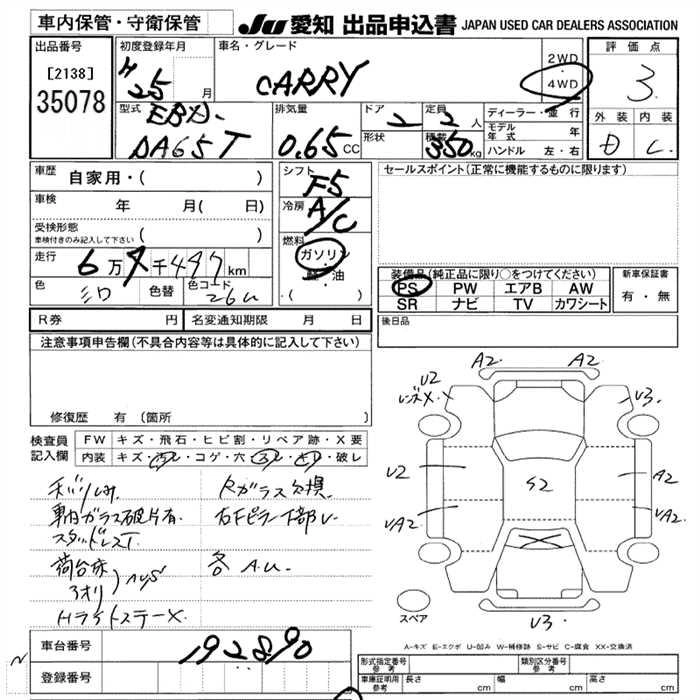 車内保管・守衛保管
JU 愛知 出品申込書 JAPAN USED CAR DEALERS ASSOCIATION
出品番号
[2138]
35078
初度登録年月
H 25 月
車名・グレード
CARRY
2WD
・
4WD
評価点
3
外装 内装
D C
型式
EBD-
DA65T
排気量
0.65 CC
ドア 2
形状
定員 2 人
積載 350 kg
ディーラー・並行
モデル年式 年
ハンドル 左・右
車歴 自家用・( )
車検 年 月( 日)
受検形態
車検付きのみ記入して下さい ( )
走行 6万7千447km
色 シロ 色替 色コード 26U
シフト F5
冷房 A/C
燃料
ガソリン
軽油
・( )
セールスポイント(正常に機能するものに限ります)
装備品(純正品に限り○をつけてください)
PS PW エアB AW
SR ナビ TV カワシート
新車保証書
有・無
R券 円 名変通知期限 月 日
後日品
注意事項申告欄(不具合内容等は具体的に記入して下さい)
修復歴 有(箇所
検査員記入欄
FW キズ・飛石・ヒビ割・リペア跡・X要
内装 キズ・汚レ・コゲ・穴・スレ・キレ・破レ
車内ガラス破片有.
スタッドレスT.
荷台床
アオリ
HライトステーX
Rガラス欠損
右Fピラー下部U
各 A.U.
A2 A2
U2
レンズX X
U3
U2
S2
A2
UA2
UA2
スペア
U3
A-キズ E-エクボ U-凹み W-補修跡 S-サビ C-腐食 XX-交換済
車台番号 192890
登録番号
形式指定番号 参考
類別区分番号 参考
車庫証明用 参考 長さ cm 幅 cm 高さ cm